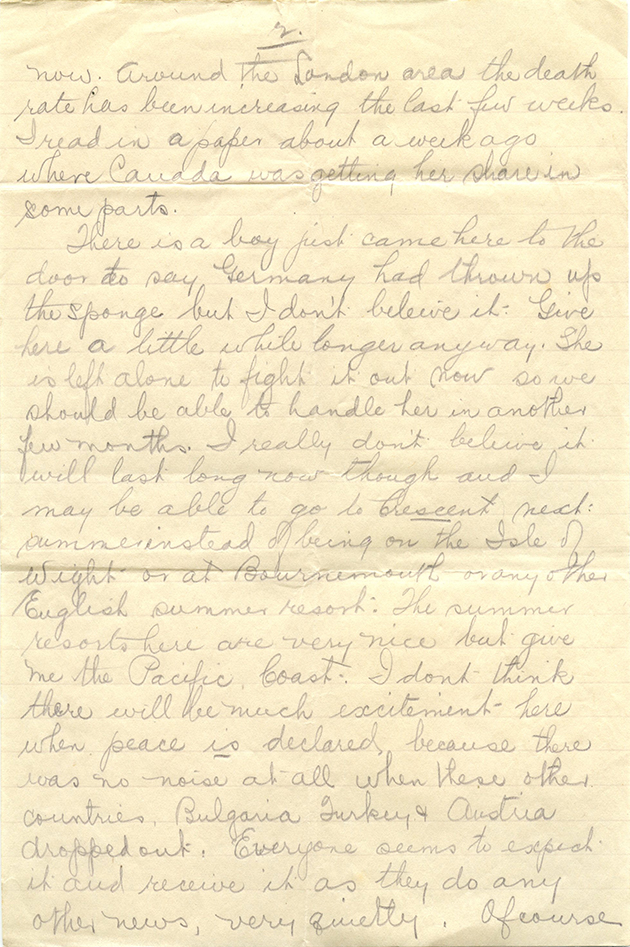 2.
now. Around the London area the death
rate has been increasing the last few weeks.
I read in a paper about a week ago
where Canada was getting her share in
some parts.
There is a boy just came here to the
door to say Germany had thrown up
the sponge but I don't beleive it. Give
here a little while longer anyway. She
is left alone to fight it out now so we
should be able to handle her in another
few months. I really don't beleive it
will last long now though and I
may be able to go to Crescent next
summer instead of being on the Isle of
Wight or at Bournemouth or any other
English summer resort. The summer
resorts here are very nice but give
me the Pacific Coast. I dont think
there will be much excitement here
when peace is declared, because there
was no noise at all when these other
countries, Bulgaria Turkey & Austria
dropped out. Everyone seems to expect
it and receive it as they do any
other news, very quietly. Of course